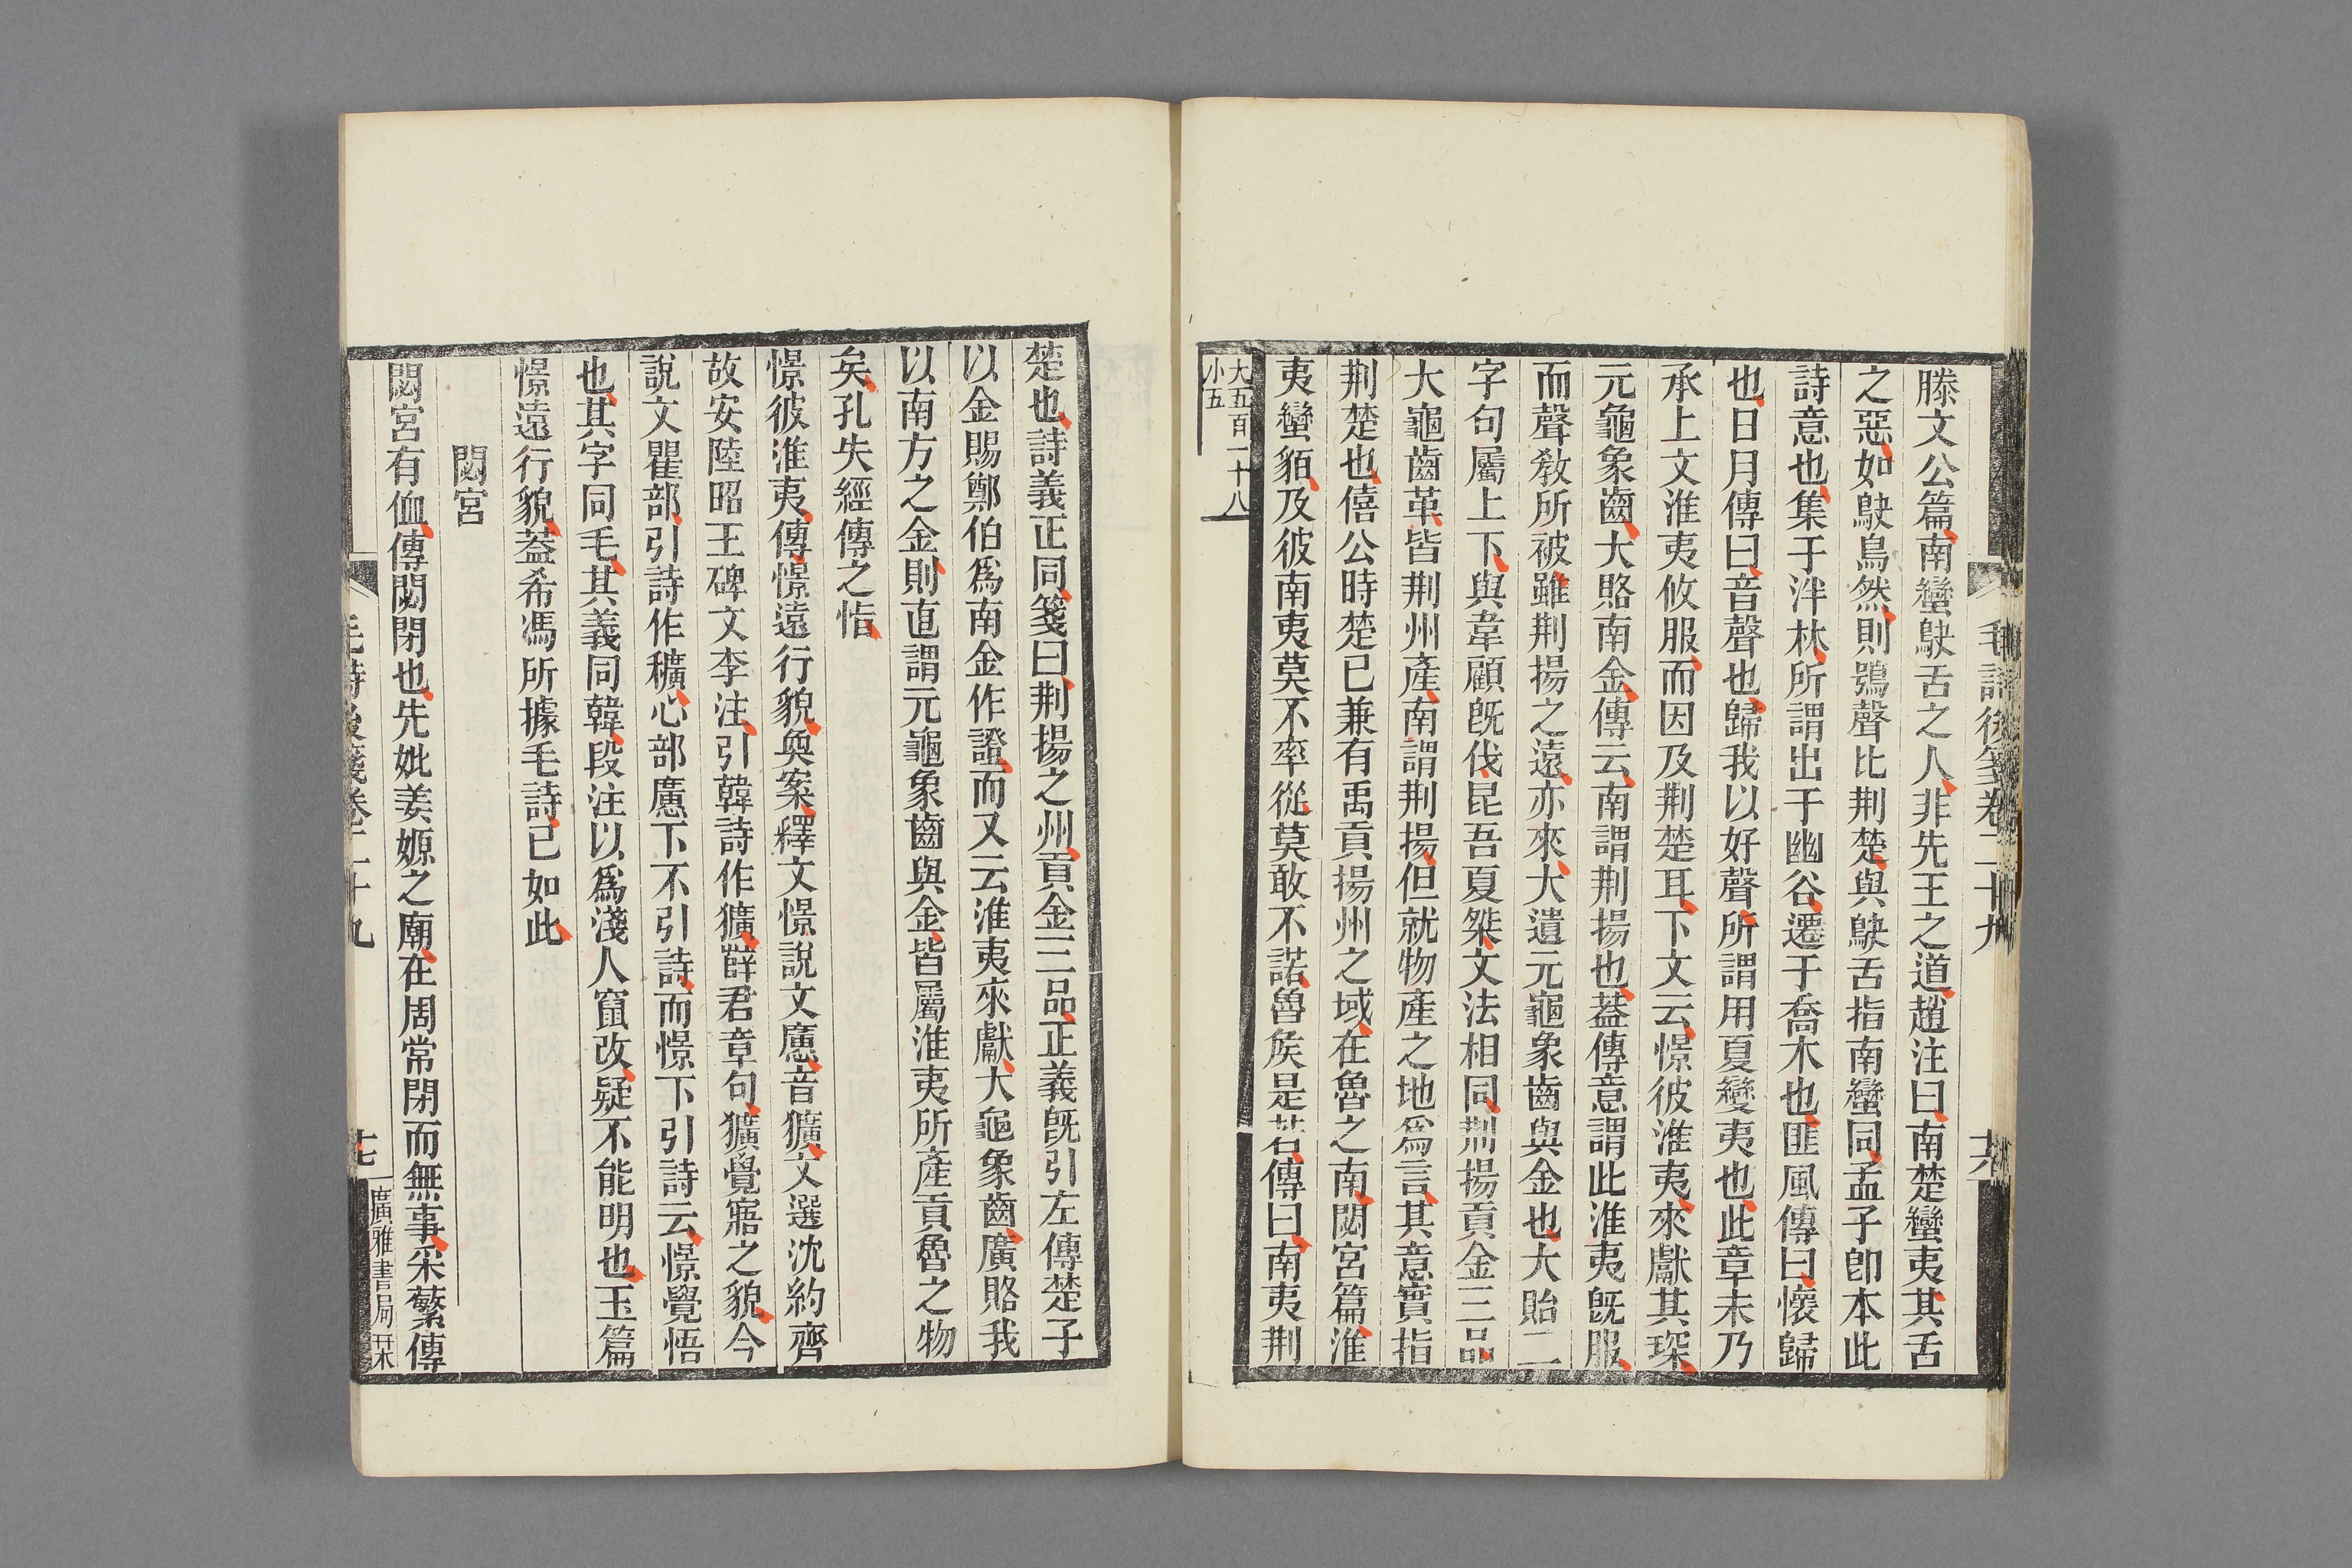 毛詩後箋卷二十九
滕文公篇南蠻鴃舌之人非先王之道趙注曰南楚蠻夷其舌
之惡如鴃鳥然則鴞聲比荆楚與鴃舌指南蠻同孟子卽本此
詩意也集于泮林所謂出于幽谷遷于喬木也匪風傳曰懷歸
也日月傳曰音聲也歸我以好聲所謂用夏變夷也此章末乃
承上文淮夷攸服而因及荆楚耳下文云憬彼淮夷來獻其琛
元龜象齒大賂南金傳云南謂荆揚也蓋傳意謂此淮夷旣服
而聲敎所被雖荆揚之遠亦來大遺元龜象齒與金也大貽二
字句屬上下與韋顧旣伐昆吾夏桀文法相同荆揚貢金三品
大龜齒革皆荆州產南謂荆揚但就物產之地爲言其意實指
荆楚也僖公時楚已兼有禹貢揚州之域在魯之南閟宮篇淮
夷蠻貊及彼南夷莫不率從莫敢不諾魯矦是若傳曰南夷荆
大五百一十八
小五
楚也詩義正同箋曰荆揚之州貢金三品正義旣引左傳楚子
以金賜鄭伯爲南金作證而又云淮夷來獻大龜象齒廣賂我
以南方之金則直謂元龜象齒與金皆屬淮夷所產貢魯之物
矣孔失經傳之恉
憬彼淮夷傳憬遠行貌奐案釋文憬說文應音獷文選沈約齊
故安陸昭王碑文李注引韓詩作獷薛君章句獷覺寤之貌今
說文瞿部引詩作穬心部應下不引詩而憬下引詩云憬覺悟
也其字同毛其義同韓段注以爲淺人竄改疑不能明也玉篇
憬遠行貌蓋希馮所據毛詩已如此
閟宮
閟宮有侐傳閟閉也先妣姜嫄之廟在周常閉而無事采蘩傳
毛詩後箋卷二十九
十七
廣雅書局栞